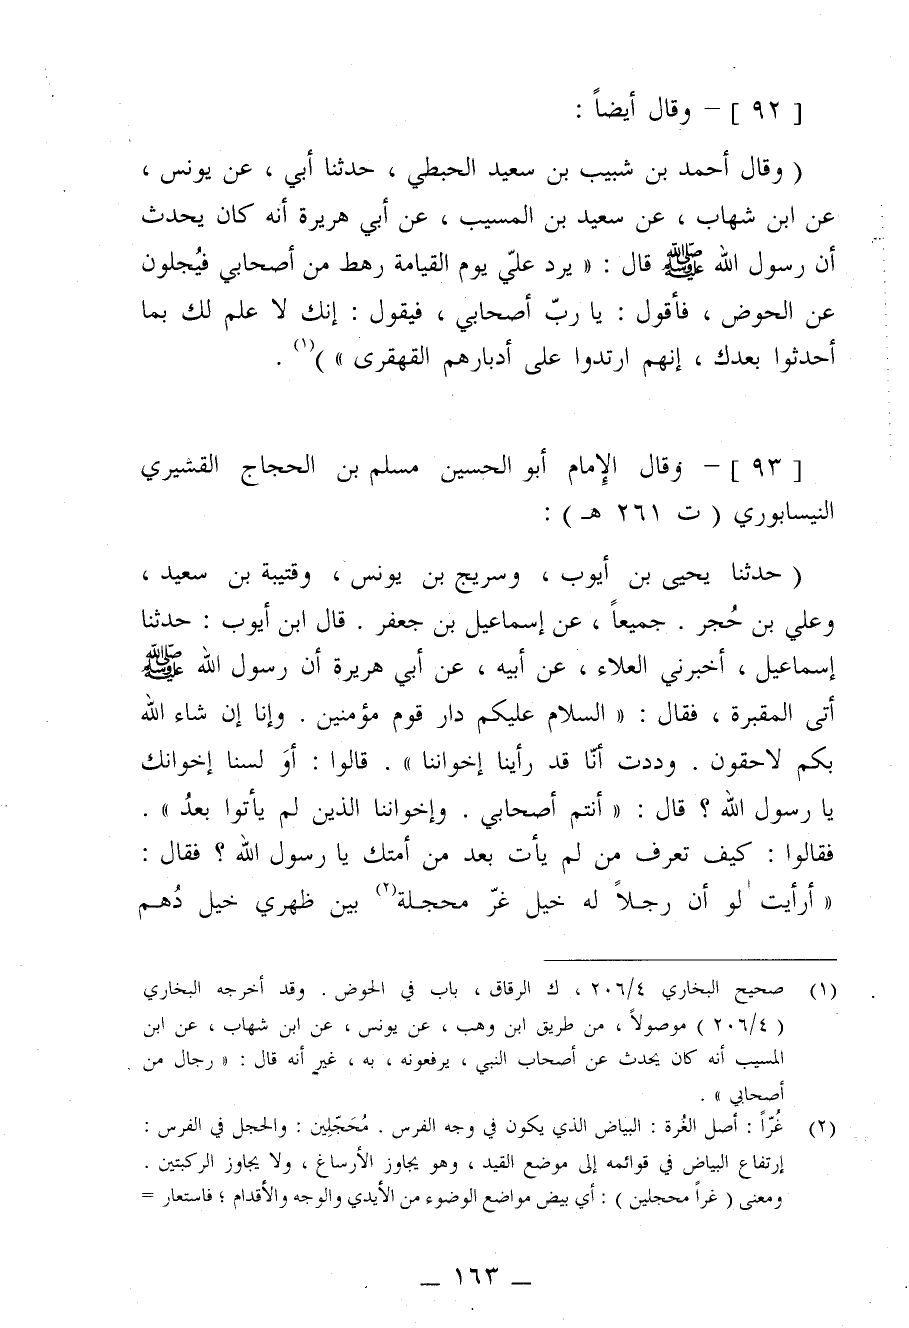 [ ٩٢ ] – وقال أيضاً :
( وقال أحمد بن شبيب بن سعيد الحبطي ، حدثنا أبي ، عن يونس ،
عن ابن شهاب ، عن سعيد بن المسيب ، عن أبي هريرة أنه كان يحدث
أن رسول الله ﷺ قال : « يرد عليّ يوم القيامة رهط من أصحابي فيُجلون
عن الحوض ، فأقول : يا ربّ أصحابي ، فيقول : إنك لا علم لك بما
أحدثوا بعدك ، إنهم ارتدوا على أدبارهم القهقرى » )(١) .
[ ٩٣ ] – وقال الإمام أبو الحسين مسلم بن الحجاج القشيري
النيسابوري ( ت ٢٦١ هـ ) :
( حدثنا يحيى بن أيوب ، وسريج بن يونس ، وقتيبة بن سعيد ،
وعلي بن حُجر . جميعاً ، عن إسماعيل بن جعفر . قال ابن أيوب : حدثنا
إسماعيل ، أخبرني العلاء ، عن أبيه ، عن أبي هريرة أن رسول الله ﷺ
أتى المقبرة ، فقال : « السلام عليكم دار قوم مؤمنين . وإنا إن شاء الله
بكم لاحقون . وددت أنّا قد رأينا إخواننا » . قالوا : أوَ لسنا إخوانك
يا رسول الله ؟ قال : « أنتم أصحابي . وإخواننا الذين لم يأتوا بعدُ » .
فقالوا : كيف تعرف من لم يأت بعد من أمتك يا رسول الله ؟ فقال :
« أرأيت لو أن رجلاً له خيل غرّ محجلة(٢) بين ظهري خيل دُهم
(١) صحيح البخاري ٢٠٦/٤ ، ك الرقاق ، باب في الحوض . وقد أخرجه البخاري
( ٢٠٦/٤ ) موصولاً ، من طريق ابن وهب ، عن يونس ، عن ابن شهاب ، عن ابن
المسيب أنه كان يحدث عن أصحاب النبي ، يرفعونه ، به ، غير أنه قال : « رجال من
أصحابي » .
(٢) غُرّاً : أصل الغُرة : البياض الذي يكون في وجه الفرس . مُحَجّلِين : والحجل في الفرس :
إرتفاع البياض في قوائمه إلى موضع القيد ، وهو يجاوز الأرساغ ، ولا يجاوز الركبتين .
ومعنى ( غراً محجلين ) : أي بيض مواضع الوضوء من الأيدي والوجه والأقدام ؛ فاستعار =
– ١٦٣ –